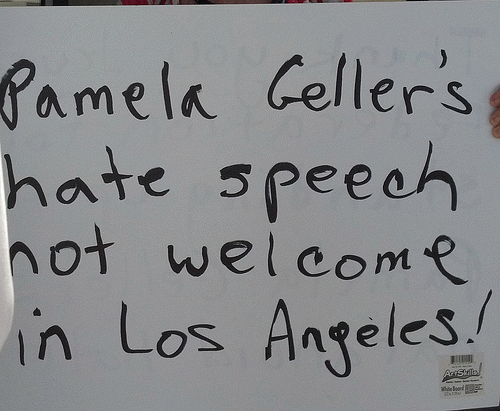 Pamela Geller's
hate speech
not welcome
in Los Angeles!
ArtSkills!
White Board